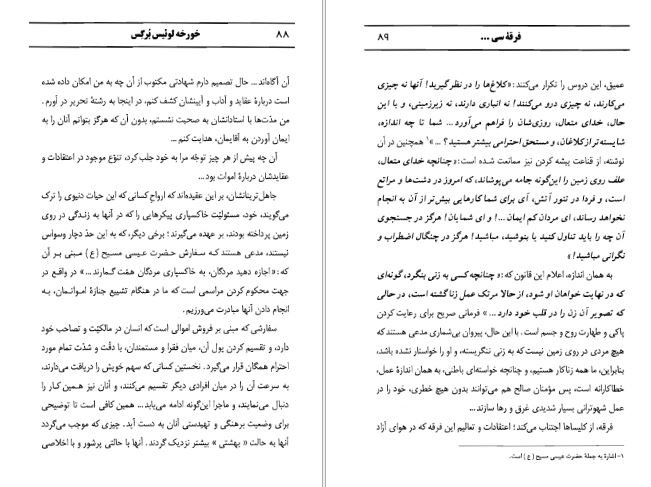 ۸۸ خورخه لوئیس بُرگس
آن آگاه‌اند... حال تصمیم دارم شهادتی مکتوب از آن چه به من امکان داده شده
است دربارهٔ عقاید و آداب و آیینشان کشف کنم، در اینجا به رشتهٔ تحریر در آورم.
من مدّت‌ها با استادانشان به صحبت نشستم، بدون آن که هرگز بتوانم آنان را به
ایمان آوردن به آقایمان، هدایت کنم ...
آن چه پیش از هر چیز توجّه مرا به خود جلب کرد، تنوّع موجود در اعتقادات و
عقایدشان دربارهٔ اموات بود...
جاهل‌ترینانشان، بر این عقیده‌اند که ارواح کسانی که این حیات دنیوی را ترک
می‌گویند، خود، مسئولیّت خاکسپاری پیکرهایی را که در آنها به زندگی در روی
زمین پرداخته بودند، بر عهده می‌گیرند؛ برخی دیگر، که به این حدّ دچار وسواس
نیستند، مدعی هستند که سفارش حضرت عیسی مسیح (ع) مبنی بر آن
که: «اجازه دهید مردگان، به خاکسپاری مردگان همّت گمارند...» در واقع در
جهت محکوم کردن مراسمی است که ما در هنگام تشییع جنازهٔ امواتمان، به
انجام دادن آنها مبادرت می‌ورزیم.
سفارشی که مبنی بر فروش اموالی است که انسان در مالکیّت و تصاحب خود
دارد، و تقسیم کردن پول آن، میان فقرا و مستمندان، با دقّت و شدّت تمام مورد
احترام همگان قرار می‌گیرد. نخستین کسانی که سهم خویش را دریافت می‌دارند،
به سرعت آن را در میان افرادی دیگر تقسیم می‌کنند، و آنان نیز همین کار را
دنبال می‌نمایند، و ماجرا این‌گونه ادامه می‌یابد... همین کافی است تا توضیحی
برای وضعیت برهنگی و تهیدستی آنان به دست آید. چیزی که موجب می‌گردد
آنها به حالت «بهشتی» بیشتر نزدیک گردند. آنها با حالتی پرشور و با اخلاصی
فرقهٔ سی ... ۸۹
عمیق، این دروس را تکرار می‌کنند: «کلاغ‌ها را در نظر گیرید! آنها نه چیزی
می‌کارند، نه چیزی درو می‌کنند! نه انباری دارند، نه زیرزمینی، و با این
حال، خدای متعال، روزی‌شان را فراهم می‌آورد... شما تا چه اندازه،
شایسته‌تر از کلاغان، و مستحق احترامی بیشتر هستید؟ ...»۱ همچنین در آن
نوشته، از قناعت پیشه کردن نیز ممانعت شده است: «چنانچه خدای متعال،
علف روی زمین را این‌گونه جامه می‌پوشاند، که امروز در دشت‌ها و مراتع
است، و فردا در تنور آتش، آی برای شما کارهایی بیش‌تر از آن به انجام
نخواهد رساند، ای مردان کم ایمان ...! و ای شمایان! هرگز در جستجوی
آن چه را باید تناول کنید یا بنوشید، مباشید! هرگز در چنگال اضطراب و
نگرانی مباشید!»
به همان اندازه، اعلام این قانون که: «چنانچه کسی به زنی بنگرد، گونه‌ای
که در نهایت خواهان او شود، از حالا مرتکب عمل زنا گشته است، در حالی
که تصویر آن زن را در قلب خود دارد...» فرمانی صریح برای رعایت کردن
پاکی و طهارت روح و جسم است. با این حال، پیروان بی‌شماری مدعی هستند که
هیچ مردی در روی زمین نیست که به زنی ننگریسته، و او را خواستار نشده باشد،
بنابراین، ما همه زناکار هستیم، و چنانچه خواسته‌ای باطنی، به همان اندازهٔ عمل،
خطاکارانه است، پس مؤمنان صالح هم می‌توانند بدون هیچ خطری، خود را در
عمل شهوترانی بسیار شدیدی غرق و رها سازند...
فرقه، از کلیساها اجتناب می‌کند؛ اعتقادات و تعالیم این فرقه که در هوای آزاد
۱- اشاره به جملهٔ حضرت عیسی مسیح (ع) است.